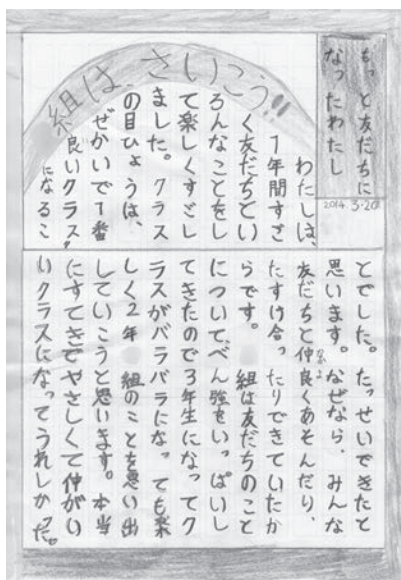 もっと友だちに
なったわたし
2014.3.20
組は、さいこう!!
わたしは、
1年間すご
く友だちとい
ろんなことをし
て楽しくすごし
ました。クラス
の目ひょうは、
ぜかいで1番
良いクラス。
になるこ
とでした。たっせいできたと
思います。なぜなら、みんな
友だちと仲良くあそんだり、
たすけ合ったりできていたか
らです。 組は友だちのこと
について、べん強をいっぱいし
てきたので3年生になってク
ラスがバラバラになっても楽
しく2年 組のことを思い出
していこうと思います。本当
にすてきでやさしくて仲がい
いクラスになってうれしかった。